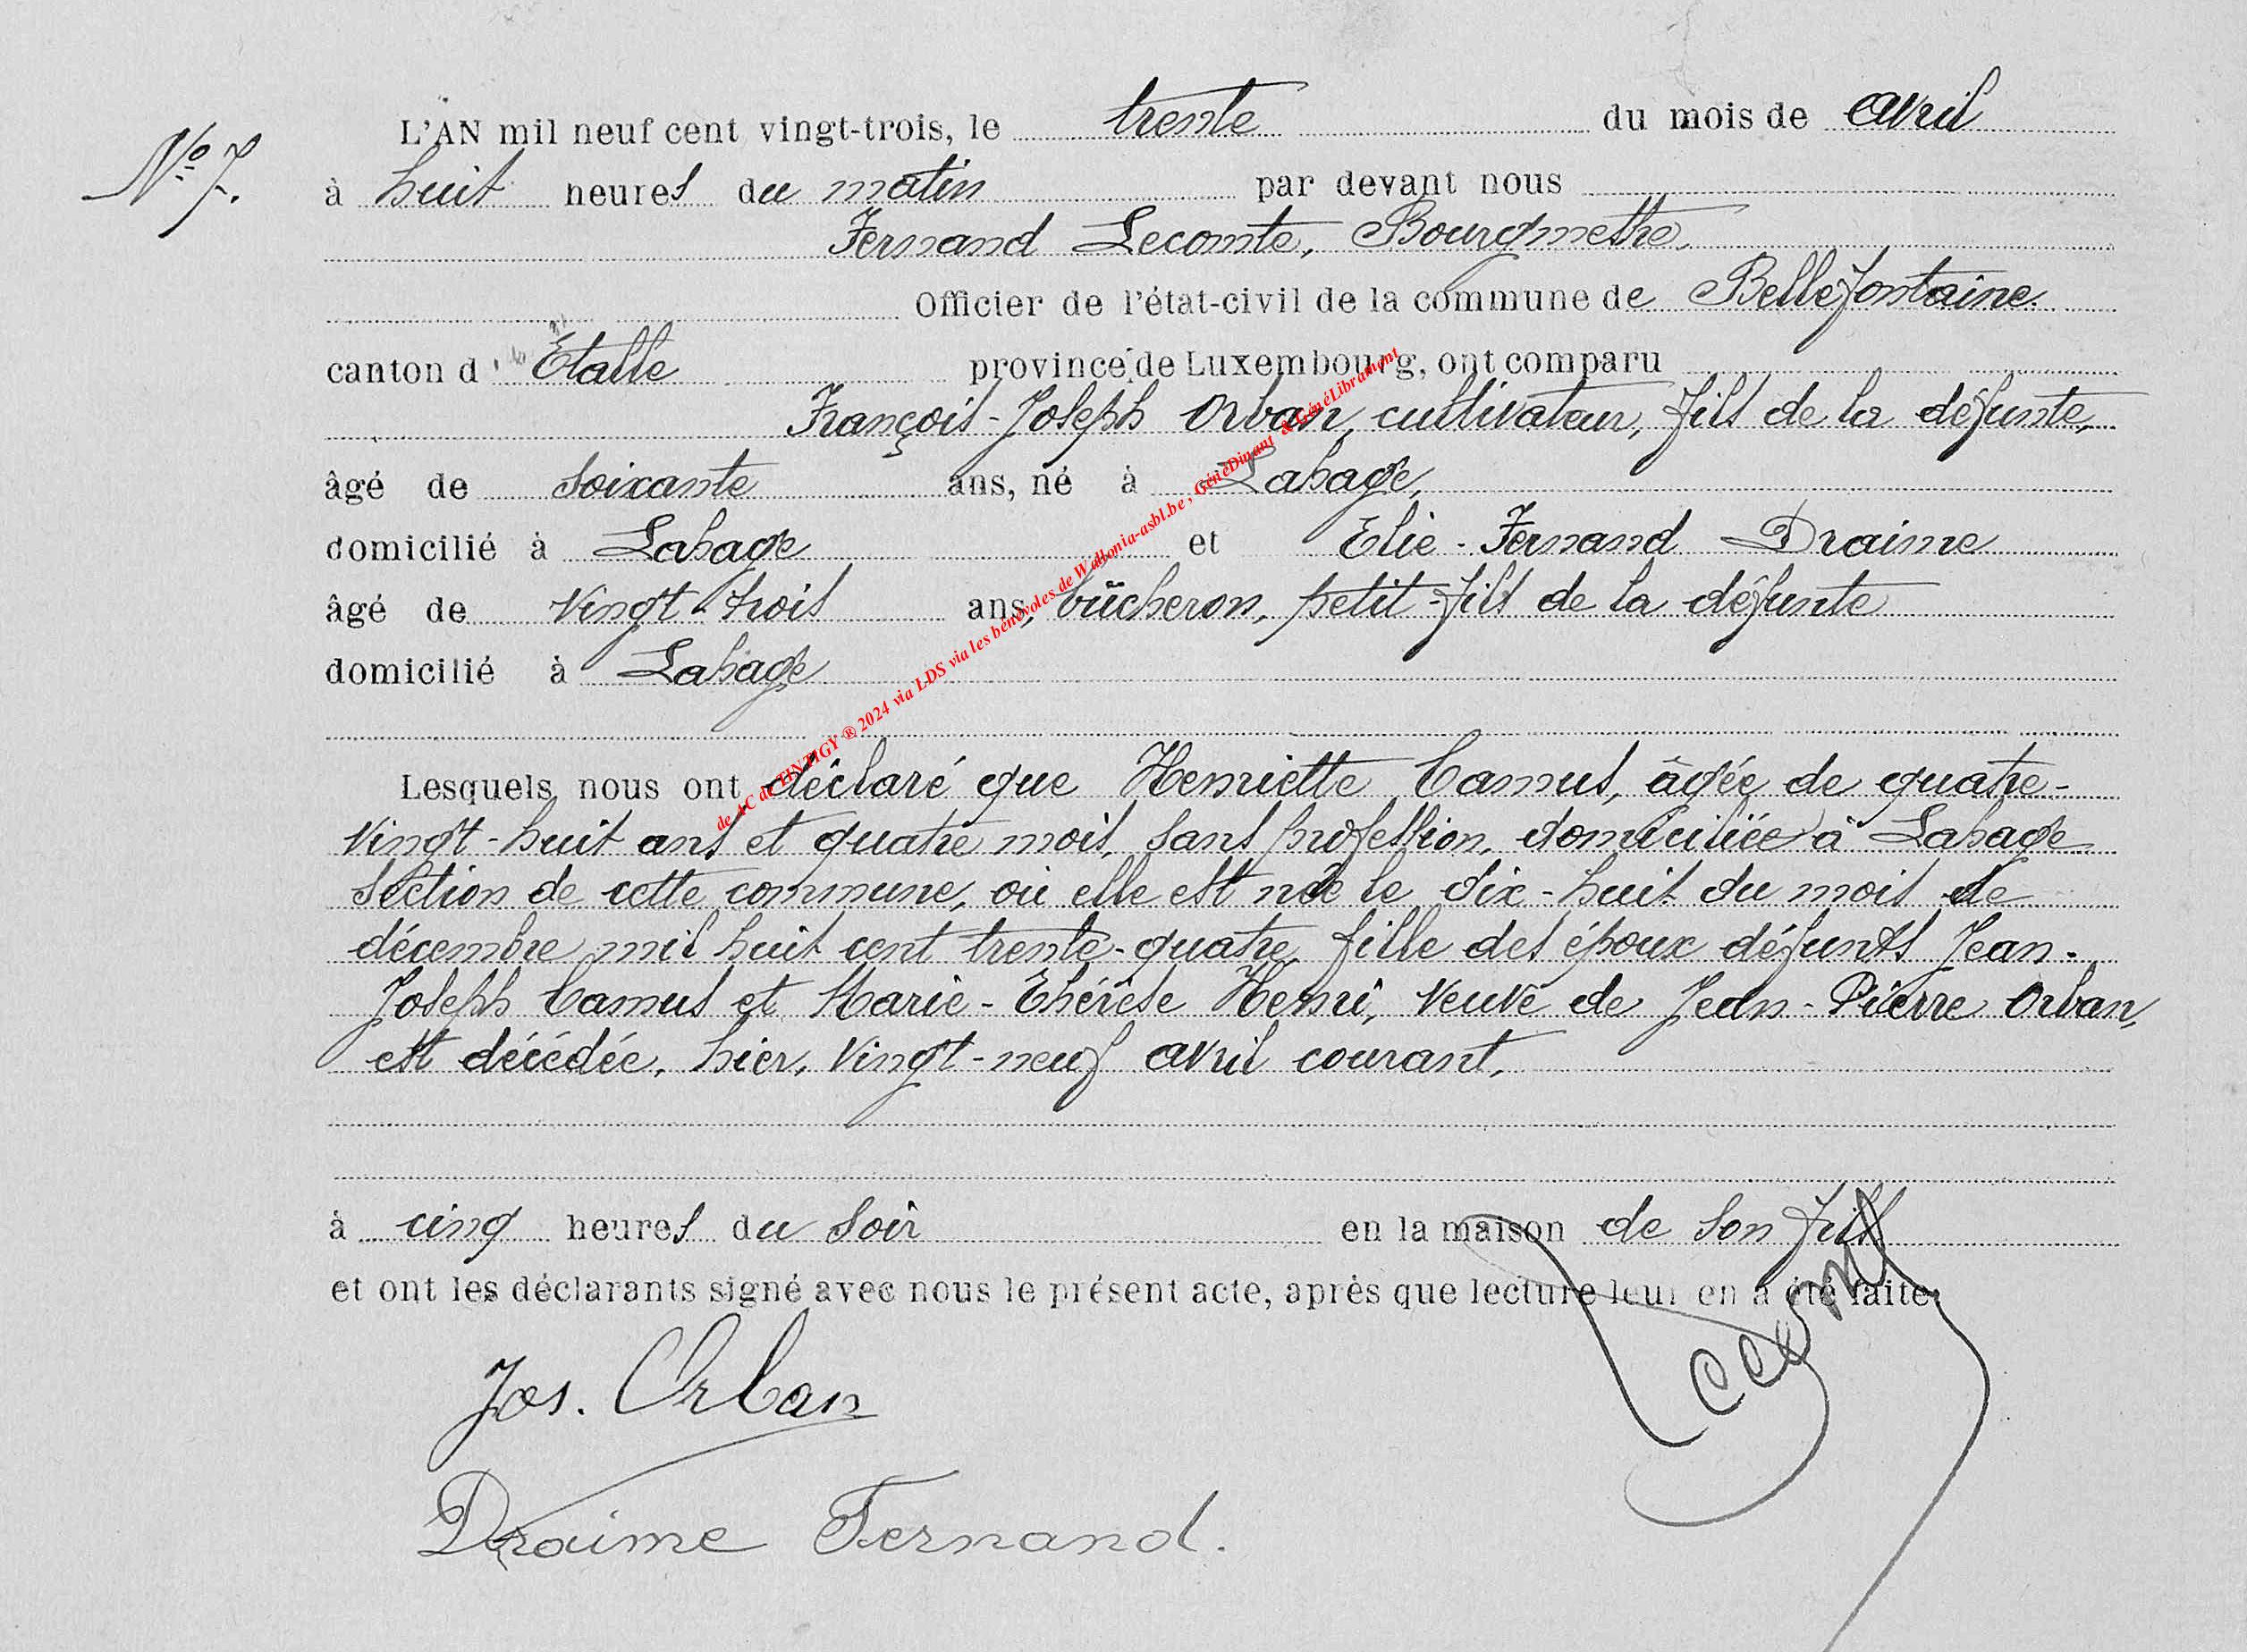 L'AN mil neuf cent vingt-trois, le trente du mois de avril
N° 7.
à huit heures du matin par devant nous
Fernand Lecomte, Bourgmestre,
Officier de l'état-civil de la commune de Bellefontaine.
canton d' Etalle province de Luxembourg, ont comparu
François-Joseph Orban, cultivateur, fils de la défunte,
âgé de soixante ans, né à Lahage,
domicilié à Lahage et Elie-Fernand Draime
âgé de vingt-trois ans, bûcheron, petit-fils de la défunte
domicilié à Lahage
de AC de TINTIGY ® 2024 via LDS via les bénévoles de Wallonia-asbl.be, GénéDinant & GénéLibramont
Lesquels nous ont déclaré que Henriette Camus, âgée de quatre-
vingt-huit ans et quatre mois, sans profession, domiciliée à Lahage
section de cette commune, où elle est née le dix-huit du mois de
décembre mil huit cent trente-quatre, fille des époux défunts Jean-
Joseph Camus et Marie-Thérèse Henri, veuve de Jean-Pierre Orban,
est décédée, hier, vingt-neuf avril courant,
à cinq heures du soir en la maison de son fils
et ont les déclarants signé avec nous le présent acte, après que lecture leur en a été faite.
Jos. Orban
Lecomte
Draime Fernand.